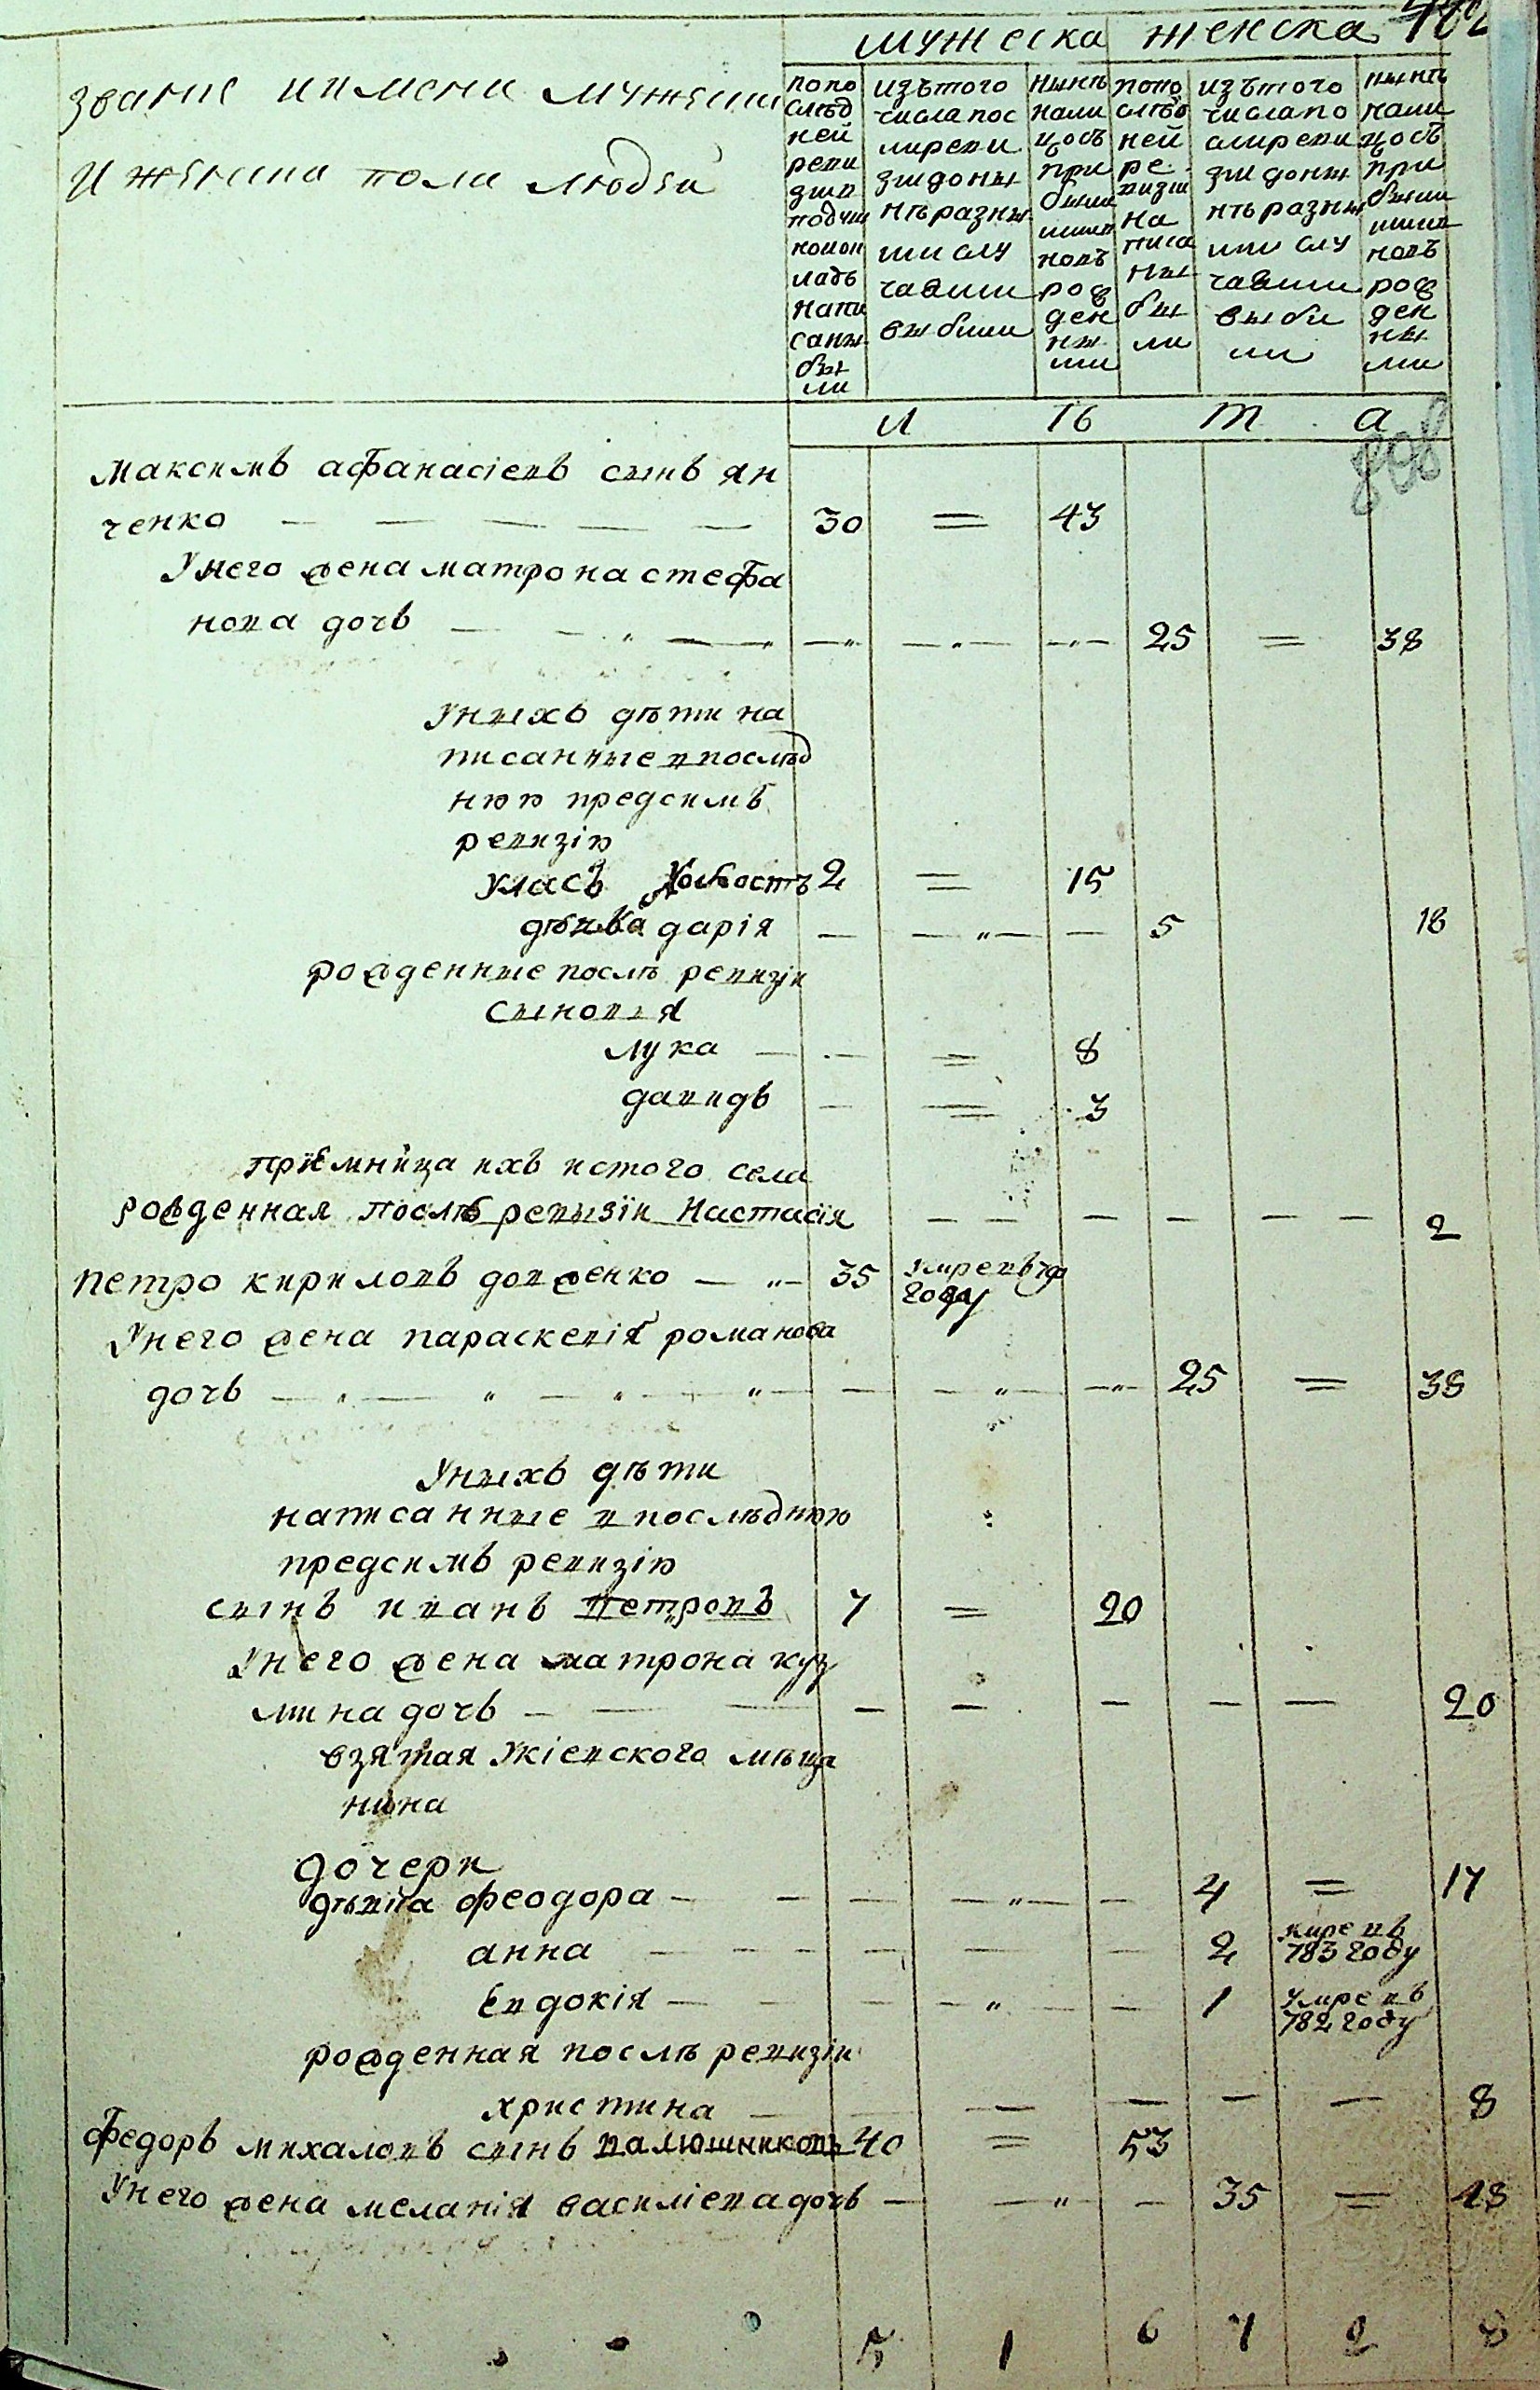 мужеска женска
званіе иимена мужеска
И женска пола людей
попо слѣд ней реви зіи подуш номои ладъ напи саны бы ли
изътого числапос лиреви зіидоны нѣразны ми слу чаями выбили
нынѣ нали цосъ при бывши ми и новъ рож ден ны ми
попо слѣд ней ре визіи на писа ны бы ли
изътого числапо слиреви зіидоны нѣразны ми слу чаями выби ли
нынѣ нали цосъ при бывши ми новъ рож ден ны ми
л ѣ т а
808
максимъ афанасіевъ сынъ ян
ченко 30 = 43
Унего жена матрона стефа
нова дочъ 25 = 38
Унихъ дѣти на
писанные впослѣд
нюю предсимъ
ревизію
уласъ холостъ 2 = 15
дѣвка дарія 5 18
рожденные послѣ ревизіи
сыновья
лука = 8
давидъ = 3
пріемница ихъ истого села
рожденная послѣ ревизіи Настасія 2
петро кириловъ довженко 35 умревъ году
Унего жена параскевія романова
дочъ 25 = 38
Унихъ дѣти
написанные впослѣднюю
предсимъ ревизію
сынъ иванъ Петровъ 7 = 20
Унего жена матрона куз
мина дочъ 20
взятая Укіевского мѣща
нина
дочери
дѣвка феодора 4 = 17
анна 2 умре въ 783 году
Евдокія 1 умре въ 782 году
рожденная послѣ ревизіи
христина 8
Федоръ михаловъ сынъ 40 = 53
Унего жена меланія василіева дочъ 35 = 48
5 1 6 7 2 8